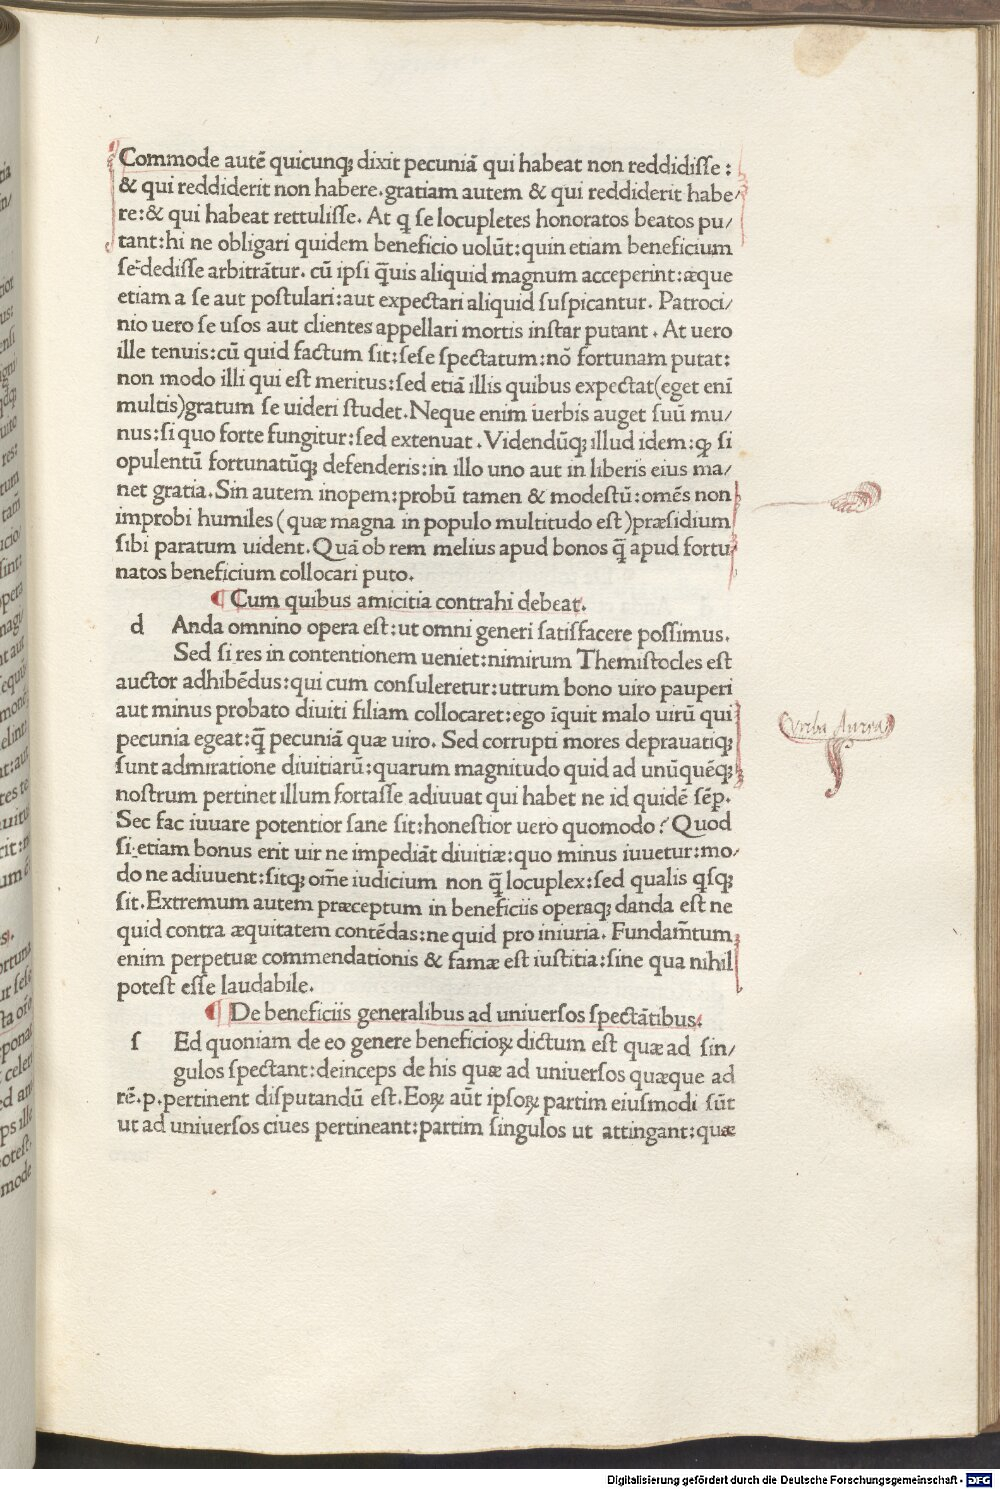 Commode autē quicunqꝫ dixit pecuniā qui habeat non reddidisse:
& qui reddiderit non habere.gratiam autem & qui reddiderit habe/
re:& qui habeat rettulisse. At q̨ se locupletes honoratos beatos pu/
tant:hi ne obligari quidem beneficio uolūt:quin etiam beneficium
se-dedisse arbitrātur. cū ipsi q̄uis aliquid magnum acceperint:æque
etiam a se aut postulari:aut expectari aliquid suspicantur. Patroci/
nio uero se usos aut clientes appellari mortis instar putant. At uero
ille tenuis:cū quid factum sit:sese spectatum:nō fortunam putat:
non modo illi qui est meritus:sed etiā illis quibus expectat(eget enī
multis)gratum se uideri studet.Neque enim uerbis auget suū mu/
nus:si quo forte fungitur:sed extenuat. Videndūqꝫ illud idem:ꝙ si
opulentū fortunatūqꝫ defenderis:in illo uno aut in liberis eius ma/
net gratia.Sin autem inopem:probū tamen & modestū:omēs non
improbi humiles (quæ magna in populo multitudo est)præsidium
sibi paratum uident.Quā ob rem melius apud bonos q̄ apud fortu/
natos beneficium collocari puto.
¶ Cum quibus amicitia contrahi debeat.
d Anda omnino opera est:ut omni generi satisfacere possimus.
Sed si res in contentionem ueniet:nimirum Themistocles est
auctor adhibēdus:qui cum consuleretur:utrum bono uiro pauperi
aut minus probato diuiti filiam collocaret:ego īquit malo uirū qui
pecunia egeat:q̄ pecuniā quæ uiro. Sed corrupti mores deprauatiqꝫ
sunt admiratione diuitiarū:quarum magnitudo quid ad unūquēqꝫ
nostrum pertinet illum fortasse adiuuat qui habet ne id quidē sēp.
Sec fac iuuare potentior sane sit:honestior uero quomodo? Quod
si-etiam bonus erit uir ne impediāt diuitiæ:quo minus iuuetur:mo/
do ne adiuuent:sitqꝫ om̄e iudicium non q̄ locuplex:sed qualis qsqꝫ
sit.Extremum autem præceptum in beneficiis operaqꝫ danda est ne
quid contra æquitatem contēdas:ne quid pro iniuria. Fundam̄tum
enim perpetuæ commendationis & famæ est iustitia:sine qua nihil
potest esse laudabile.
¶ De beneficiis generalibus ad uniuersos spectātibus.
s Ed quoniam de eo genere beneficioꝝ dictum est quæ ad sin/
gulos spectant:deinceps de his quæ ad uniuersos quæque ad
rē.p.pertinent disputandū est.Eoꝝ aūt ipsoꝝ partim eiusmodi sūt
ut ad uniuersos ciues pertineant:partim singulos ut attingant:quæ
Verba Aurea
Digitalisierung gefördert durch die Deutsche Forschungsgemeinschaft - DFG